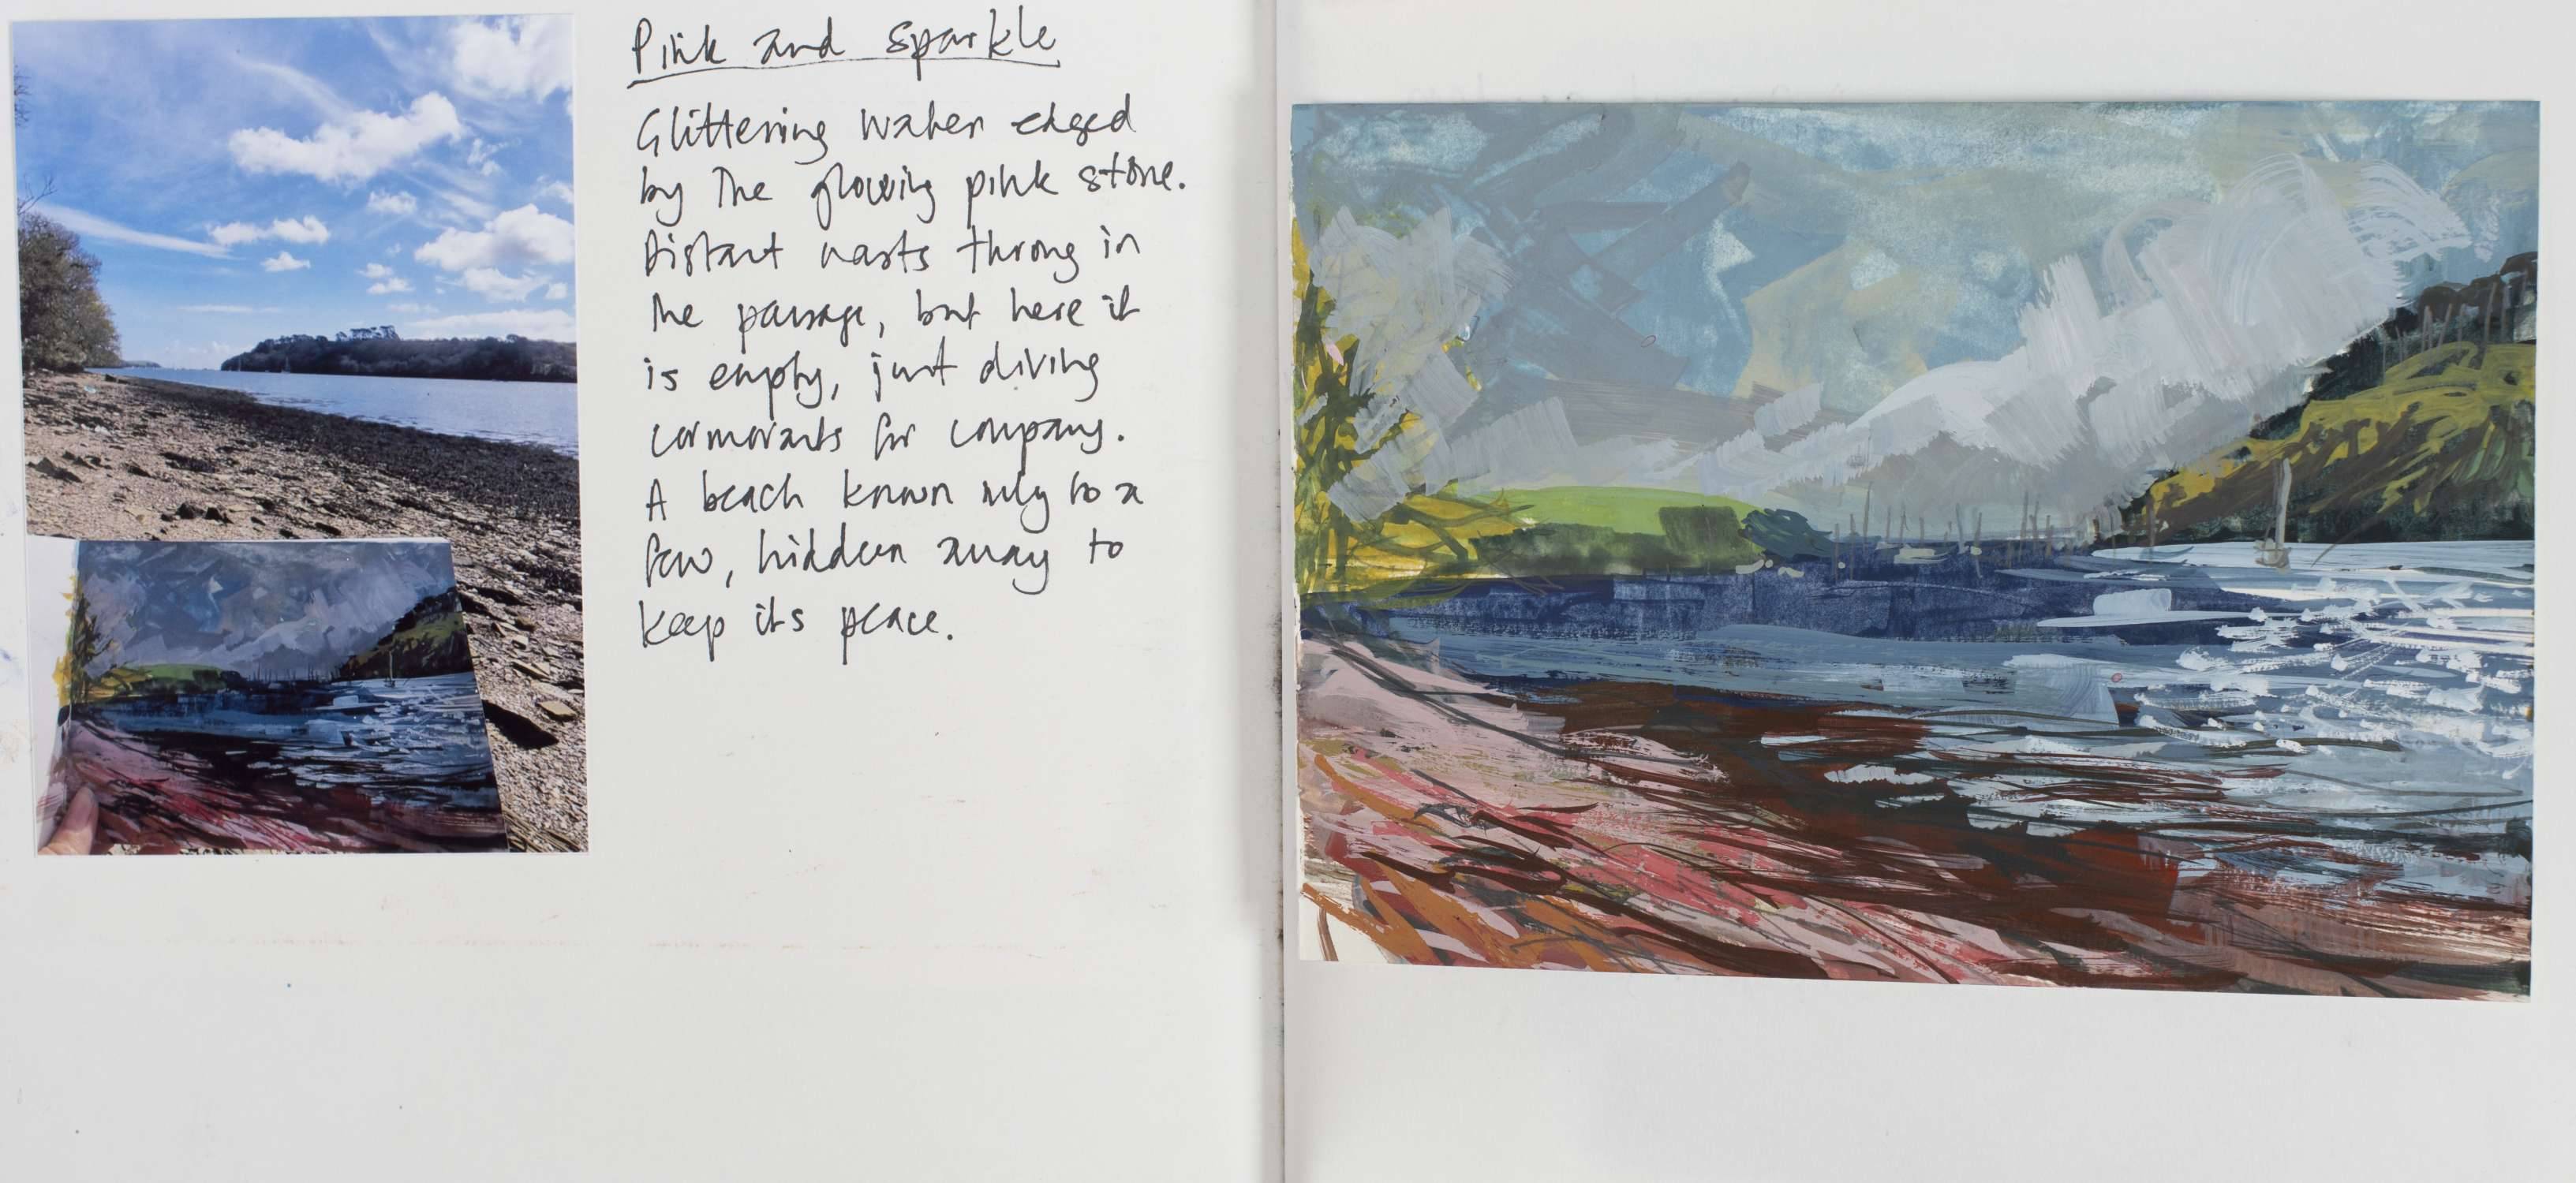 Pink and sparkle
Glittering water edged
by the glowing pink stone.
Distant masts throng in
the passage, but here it
is empty, just diving
cormorants for company.
A beach known only to a
few, hidden away to
keep its peace.